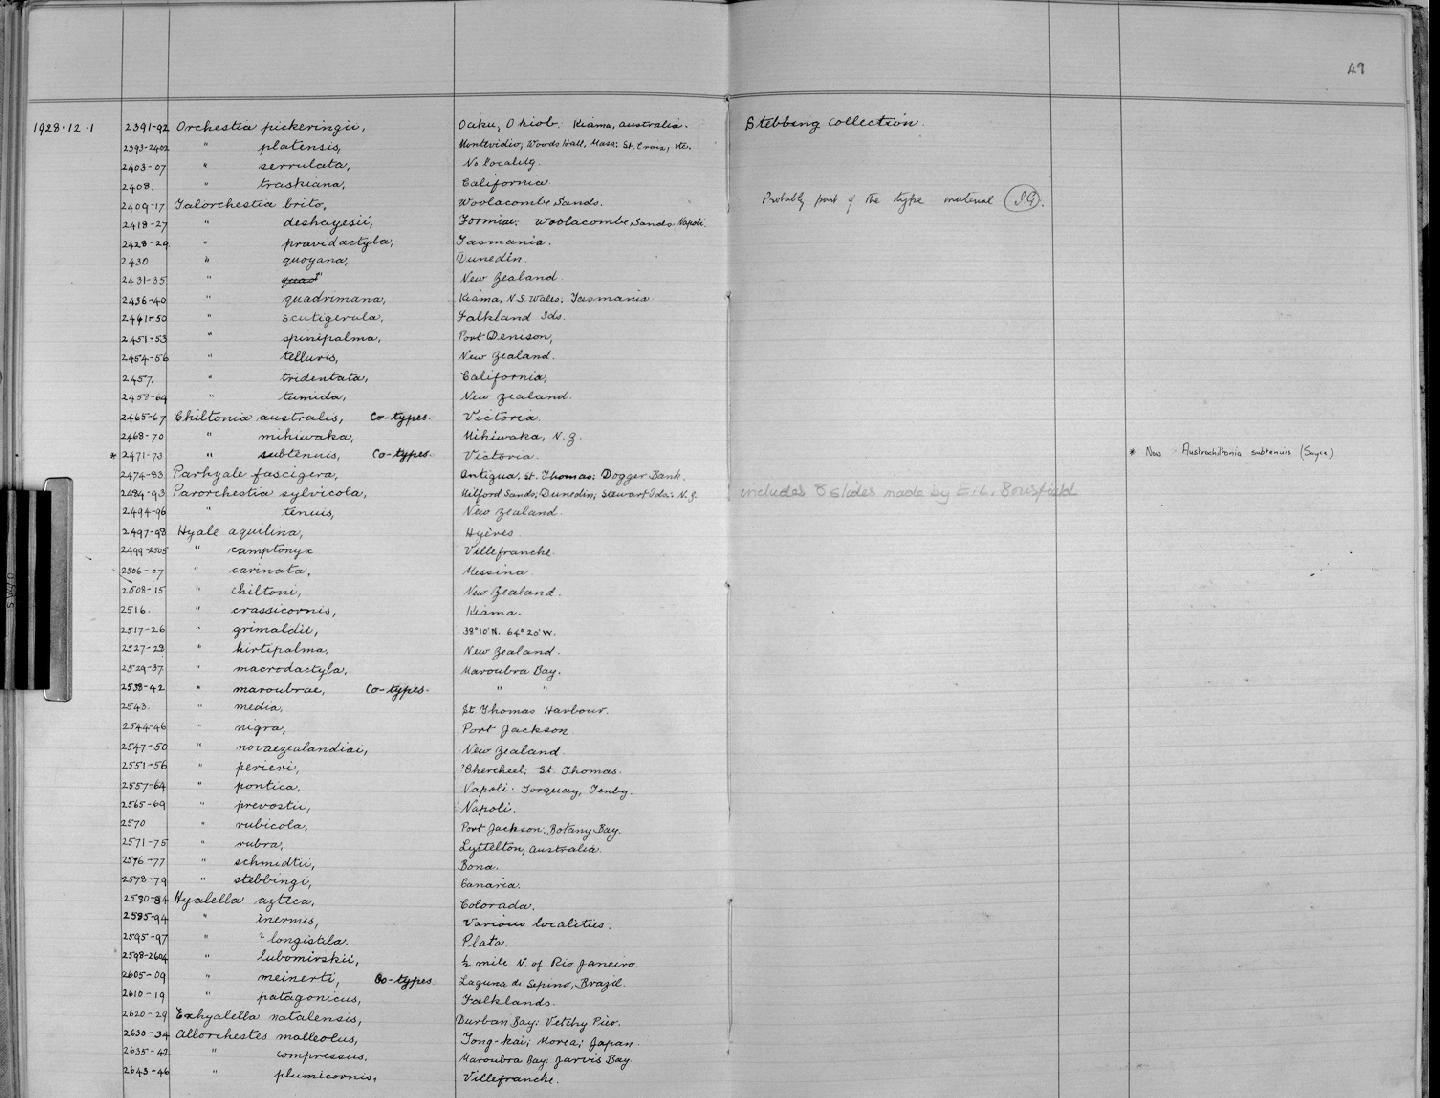 49
1928.12.1 2391-92 Orchestia pickeringii, Oahu, Ohiob. Kiama, Australia. Stebbing Collection.
2393-2402 " platensis, Montevidio, Woods Hall, Mass: St. Croix, etc.
2403-07 " serrulata, No locality.
2408. " traskiana, California
2409-17 Talorchestia brito, Woolacombe Sands. Probably part of the type material
2418-27 " deshayesii, Woolacombe Sands. Napoli.
2428-29. " pravidactyla, Tasmania.
2430 " quoyana, Dunedin.
2431-35 " New Zealand
2436-40 " quadrimana, Kiama, N.S. Wales; Tasmania
2441-50 " scutigerula, Falkland Ids.
2451-53 " spinipalma, Port Denison,
2454-56 " telluris, New Zealand.
2457. " tridentata, California,
2458-64 " tumida, New Zealand.
2465-67 Chiltonia australis, Co-types. Victoria.
2468-70 " mihiwaka, Mihiwaka, N.Z.
* 2471-73 " subtenuis, Co-types. Victoria. * Now Austrochiltonia subtenuis (Sayce)
2474-83 Parhyale fascigera, Antigua, St. Thomas; Dogger Bank.
2484-93 Parorchestia sylvicola, Milford Sands; Dunedin; Stewart Ids: N.Z. includes 8 slides made by E.L. Bousfield
2494-96 " tenuis, New Zealand.
2497-98 Hyale aquilina, Hyères
2499-2505 " camptonyx Villefranche.
2506-07 " carinata, Messina
2508-15 " chiltoni, New Zealand.
2516. " crassicornis, Kiama.
2517-26 " grimaldii, 38°10'N. 64°20'W.
2527-28 " hirtipalma, New Zealand.
2529-37 " macrodactyla, Maroubra Bay.
2538-42 " maroubrae, Co-types. " "
2543. " media, St. Thomas Harbour.
2544-46 " nigra, Port Jackson.
2547-50 " novaezealandiai, New Zealand.
2551-56 " perieri, Cherchell; St. Thomas.
2557-64 " pontica. Napoli. Torquay, Tenby.
2565-69 " prevostii, Napoli.
2570 " rubicola, Port Jackson; Botany Bay.
2571-75 " rubra, Lyttelton, Australia.
2576-77 " schmidtii, Bona.
2578-79 " stebbingi, Canaria.
2580-84 Hyalella azteca, Colorada.
2585-94 " inermis, Various localities.
2595-97 " longistila. Plata.
2598-2604 " lubomirskii, ½ mile N. of Rio Janeiro
2605-09 " meinerti, Co-types. Laguna de Espino, Brazil.
2610-19 " patagonicus, Falklands.
2620-29 Exhyalella natalensis, Durban Bay: Vetchy Pier.
2630-34 Allorchestes malleolus, Tong-kai; Korea; Japan.
2635-42 " compressus, Maroubra Bay; Jarvis Bay
2643-46 " plumicornis, Villefranche.